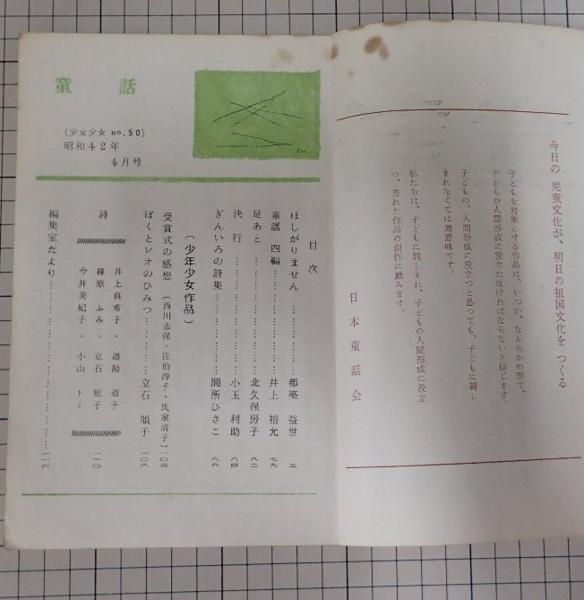 今日の 児童文化が、明日の祖国文化を つくる
子どもを対象とする作品は、いつか、なんらかの形で、
子どもの人間形成に役立たなければならないと信じます。
子どもの、人間形成に役立つと思っても、子どもに親し
まれなくては無意味です。
私たちは、子どもに親しまれ、子どもの人間形成に役立
つ、芳れた作品の創作に励みます。
日本童話会
童話
〔少女少女 no.50〕
昭和42年
4月号
目次
ほしがりません…………都築 益世 二
童謡 四編…………井上 裕允 七九
足あと…………北久保房子 八二
決行…………小玉 利助 八四
ぎんいろの詩集…………間所ひさこ 八六
〔少年少女作品〕
受賞式の感想 〔西川志保・佐伯淳子・氏家清子〕一〇四
ぼくとレオのひみつ…………立石 順子 一〇六
詩 井上真希子・道勘 道子
篠原 ふみ・立石 順子 一一〇
今井美紀子・小山 トミ
編集室だより…………一一六